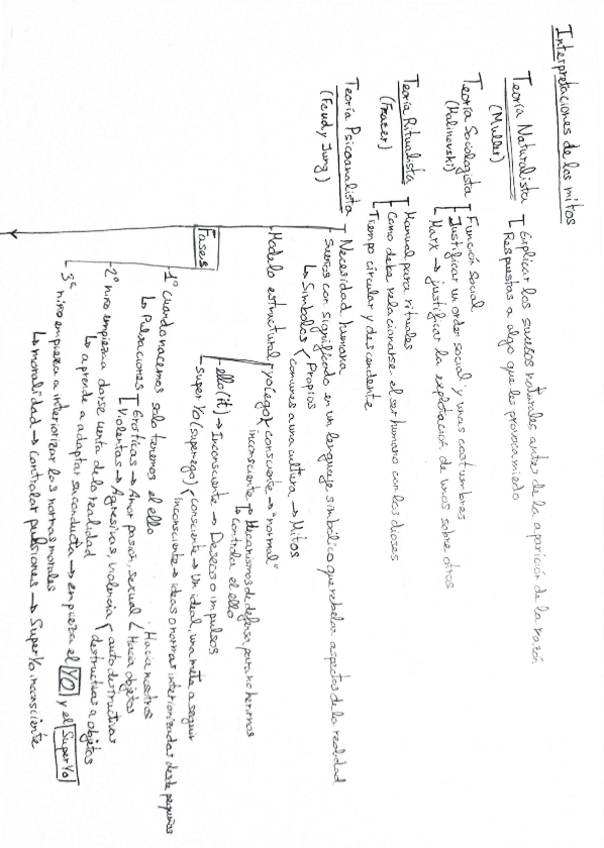 Interpretaciones de los mitos
Teoría Naturalista
(Muller)
Explicar los sucesos naturales antes de la aparición de la razón
Respuestas a algo que les provoca miedo
Teoría Sociologista
(Malinovski)
Función social
Justificar un orden social y unas costumbres
Marx → justificar la explotación de unos sobre otros
Teoría Ritualista
(Frazer)
Manual para rituales
Como debe relacionarse el ser humano con los dioses
Tiempo circular y descendente
Teoría Psicoanalista
(Feud y Jung)
Necesidad humana
Sueños con significado en un lenguaje simbolico que rebelan aspectos de la realidad
↳ Símbolos
Propios
comunes a una cultura → Mitos
Modelo estructural
yo (ego)
consciente → "normal"
inconsciente → Mecanismos de defensa para no herirnos
↳ controla el ello
ello (it) → Inconsciente → Deseos o impulsos
super Yo (superego)
consciente → Un ideal, una meta a seguir
inconsciente → ideas o normas interiorizadas desde pequeños
Fases
1º cuando nacemos solo tenemos el ello
↳ Pulsaciones
Eróticas → Amor pasión, sexual
Hacia nosotros
Hacia objetos
Violentas → Agresivas, violencia
autodestructivas
destructivas a objetos
2º niño empieza a darse cuenta de la realidad
↳ aprende a adaptar su conducta → empieza el YO y el SuperYo
3º niño empieza a interiorizar las normas morales
↳ moralidad → controlar pulsiones → SuperYo inconsciente